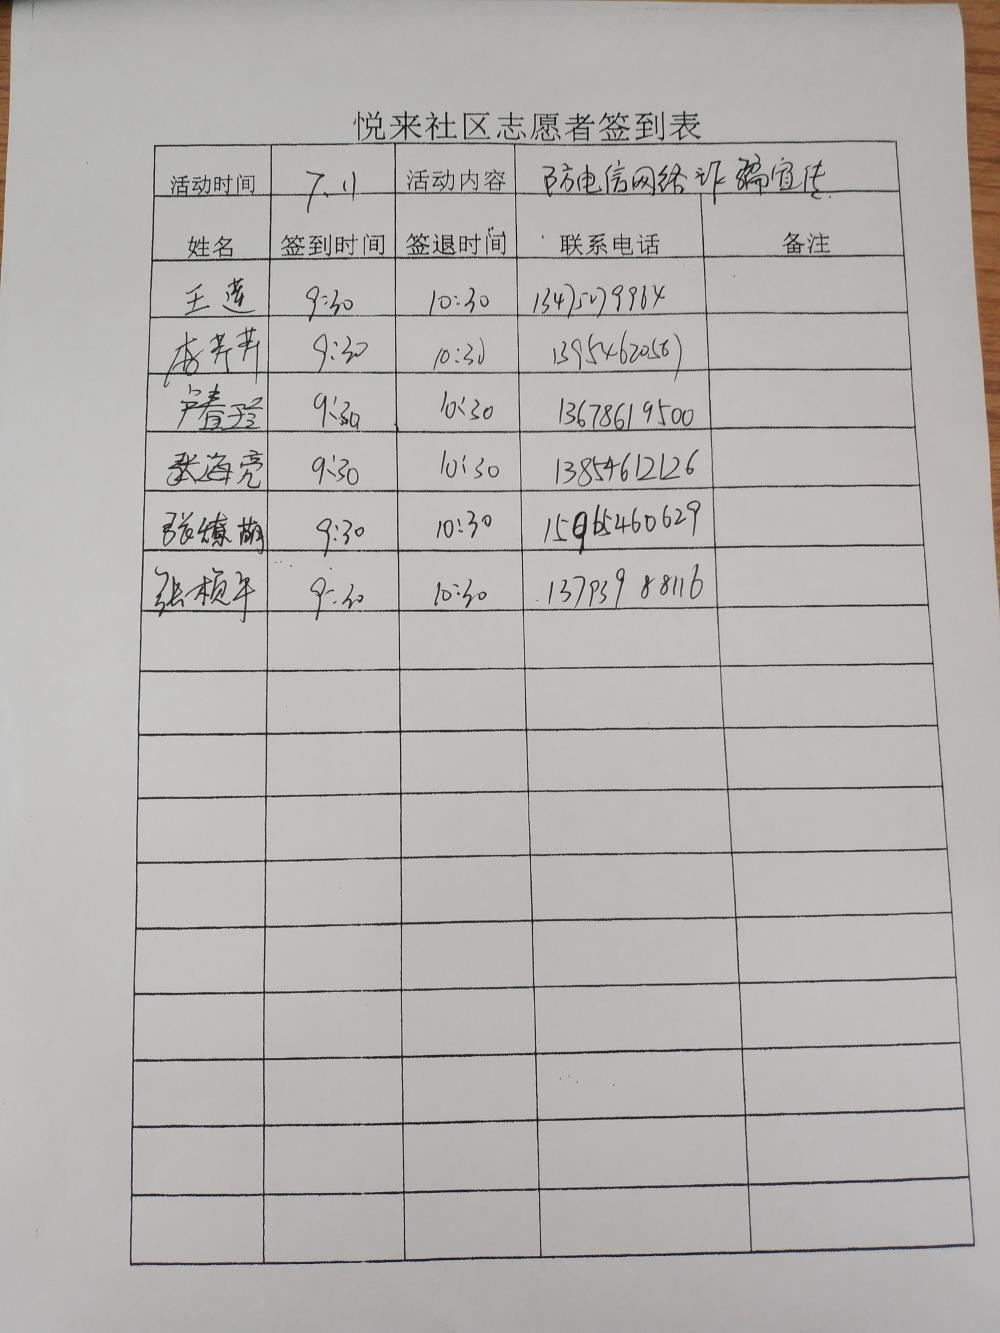 悦来社区志愿者签到表
活动时间 7.11 活动内容 防电信网络诈骗宣传
姓名 签到时间 签退时间 联系电话 备注
王莲 9:30 10:30
李芹芹 9:30 10:30 13954620567
9:30 10:30 13678619500
张海亮 9:30 10:30 13854612126
张燎萌 9:30 10:30 15965460629
张桢年 9:30 10:30 13793988116